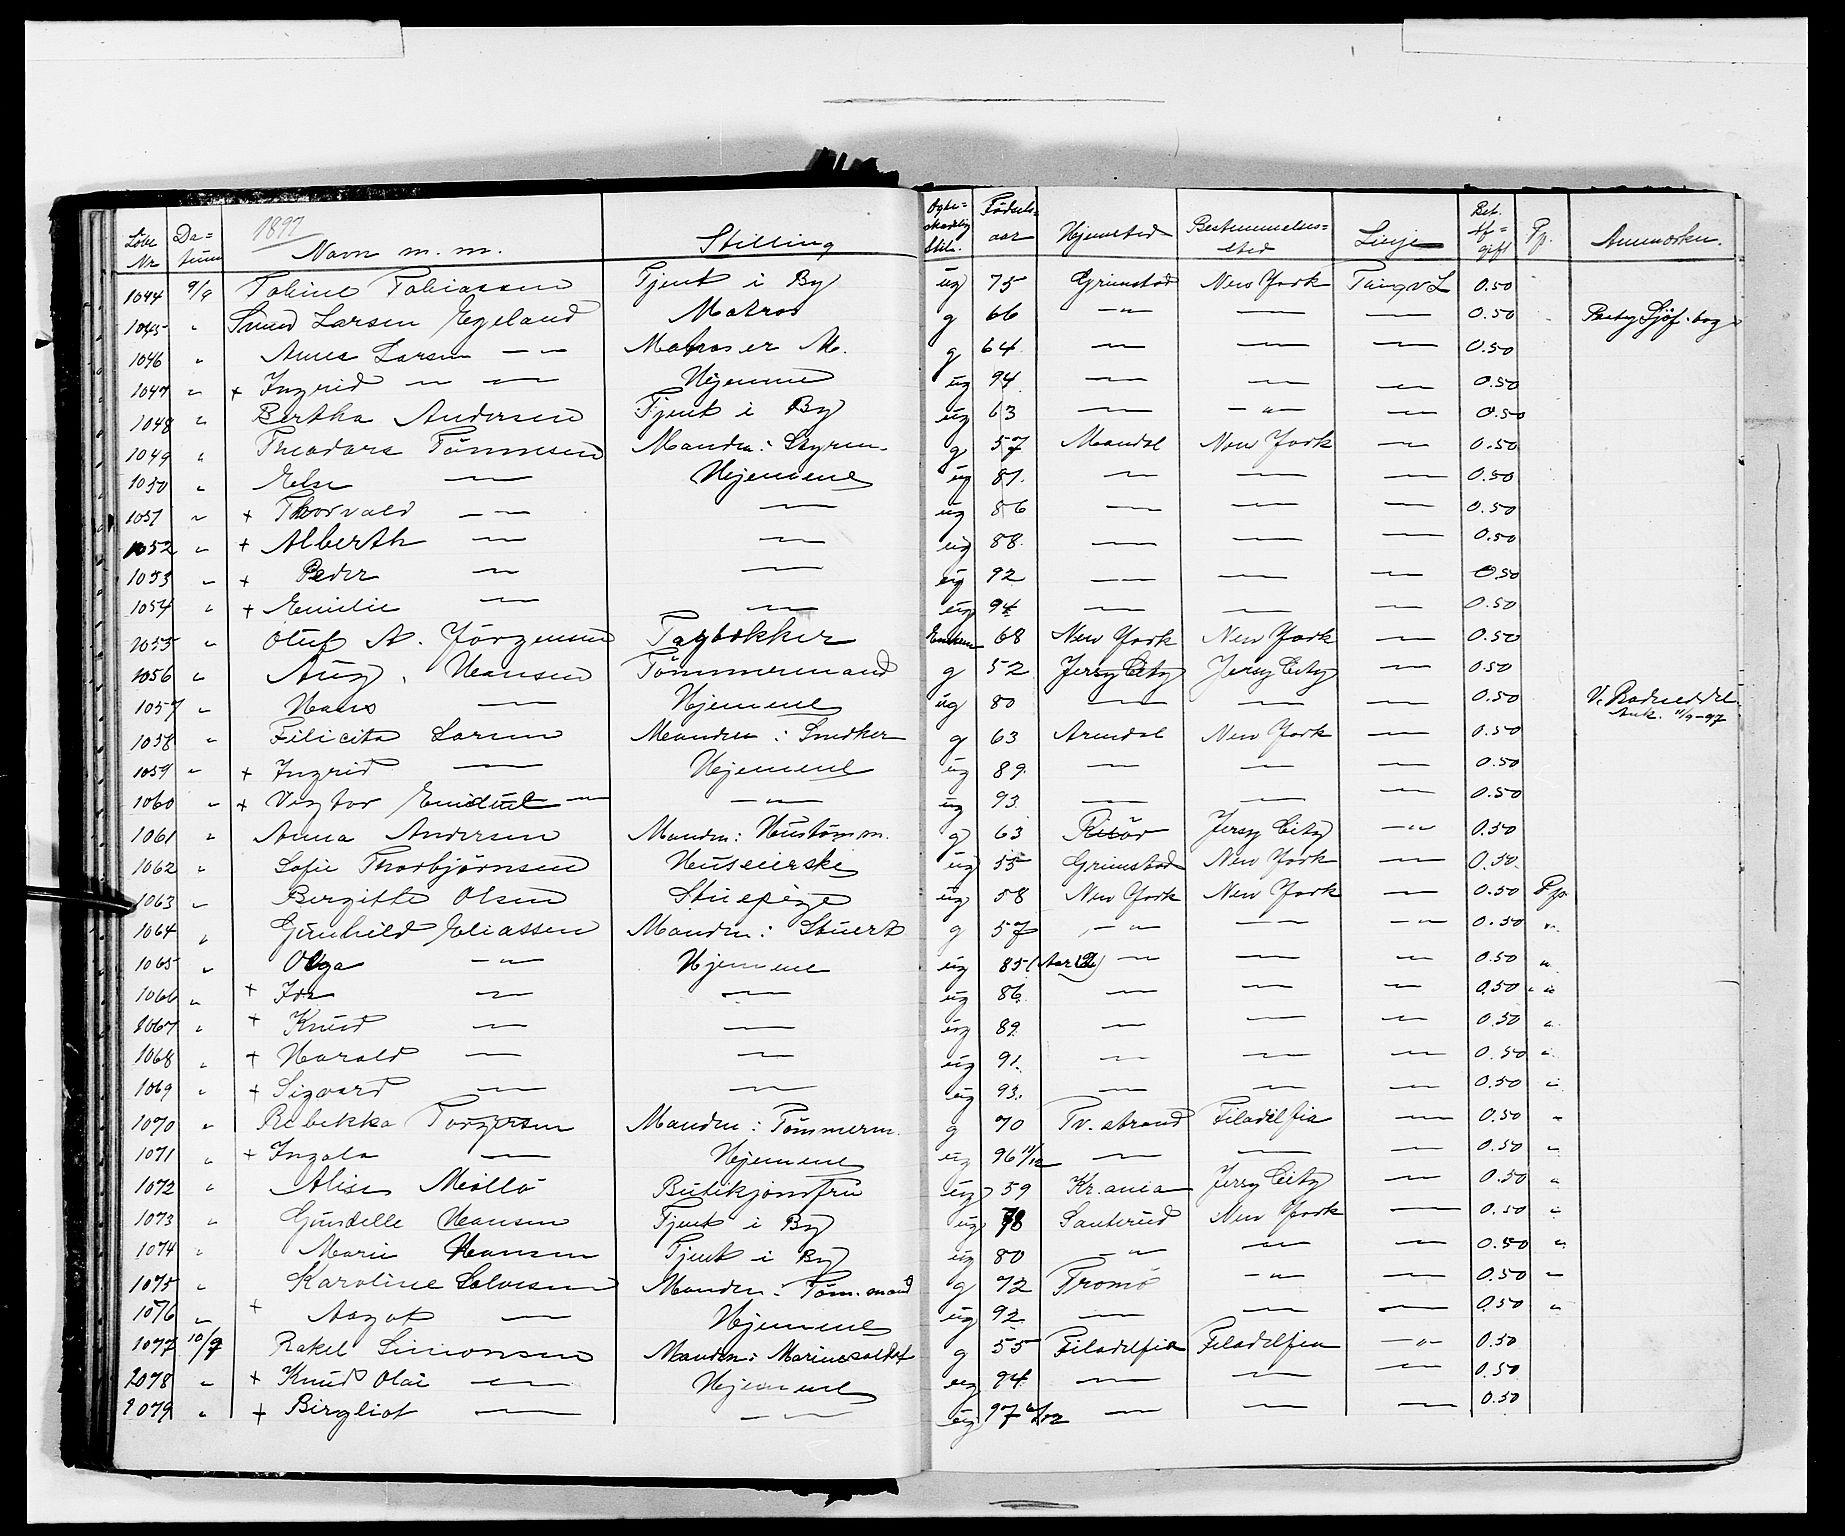 Løbe Nr. Da= tum 1897 Navn m. m. Stilling Ægte= skabelig Stil. Fødsels= aar Hjemsted Bestemmelses= sted Linje Bet. Af= gift Pp. Anmerkn.
1044 9/9 Tobine Tobiassen Tjent i By ug 75 Grimstad New York Thingv L 0.50
1045 " Svend Larsen Egeland Matros g 66 — " — — — 0.50 Sjøf. bog
1046 " Anna Larsen — " — Matroser M. g 64 — — — 0.50
1047 " + Ingrid — — Hjemme ug 94 — — — 0.50
1048 " Bertha Andersen Tjent i By ug 63 — — " — — 0.50
1049 " Theodora Tønnesen Manden: Styrm. g 57 Mandal New York — 0.50
1050 " Else — Hjemme ug 81 — — — 0.50
1051 " + Thorvald — — ug 86 — — — 0.50
1052 " + Alberth — — ug 88 — — — 0.50
1053 " + Peder — — ug 92 — — — 0.50
1054 " + Emilie — — ug 94 — — — 0.50
1055 " Oluf A. Jørgensen Tagtækker Enkem 68 New York New York — 0.50
1056 " Aug. Hansen Tømmermand g 52 Jersy City Jersy City — 0.50
1057 " Hans — Hjemme ug 80 — — — 0.50 Ank. 11/9-97
1058 " Filicita Larsen Manden: Snedker g 63 Arendal New York — 0.50
1059 " + Ingrid — Hjemme ug 89 — — — 0.50
1060 " + Vigtor Emanuel — — " — ug 93 — — — 0.50
1061 " Anna Andersen Manden: Hustømm. g 63 Risør Jersy City — " — 0.50
1062 " Sofie Thorbjørnsen Huseierske ug 55 Grimstad New York — 0.50
1063 " Bergitte Olsen Stuepige ug 58 New York New York — 0.50 Pp.
1064 " Gunhild Eliassen Manden: Stuert g 57 — " — — — " — 0.50 "
1065 " Olga — " — Hjemme ug 85 (Aar 12) — — — 0.50 "
1066 " + Ida — — ug 86 — — — 0.50 "
1067 " + Knud — — ug 89 — — — 0.50 "
1068 " + Harald — — ug 91 — — — 0.50 "
1069 " + Sigvard — — ug 93 — — — 0.50 "
1070 " Rebekka Torgersen Manden: Tømmerm. g 70 Tv. strand Filadelfia — 0.50 "
1071 " + Ingala — Hjemme ug 96 11/12 — — — 0.50 "
1072 " Alise Møllø Butikjomfru ug 59 Kr. ania Jersy City — 0.50 "
1073 " Gundelle Hansen Tjent i By ug 78 Santerud New York — 0.50 "
1074 " Marie Hansen Tjent i By ug 80 — " — — — 0.50 "
1075 " Karoline Salvesen Manden: Tøm.mand g 72 Tromø — " — — 0.50 "
1076 " + Aagot — Hjemme ug 92 — — — 0.50 "
1077 10/9 Rakel Simonsen Manden: Marinesoldat g 55 Filadelfia Filadelfia — " — 0.50
1078 " + Knud Olai — Hjemme ug 94 — — — 0.50
1079 " + Birgliot — — " — ug 97 6/12 — — — 0.50